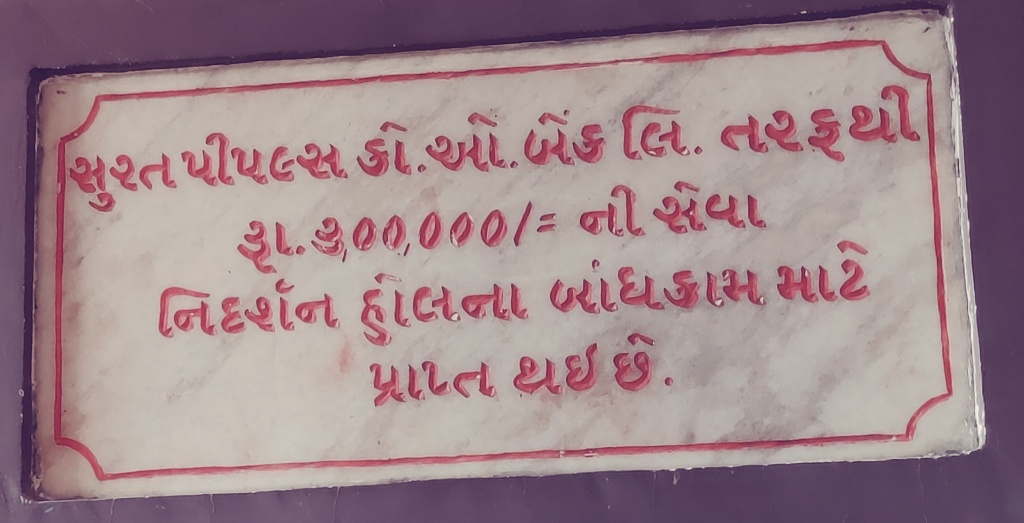 સુરત પીપલ્સ કો.ઓ.બેંક લિ. તરફથી
રૂા.૩,૦૦,૦૦૦/= ની સેવા
નિદર્શન હોલના બાંધકામ માટે
પ્રાપ્ત થઇ છે.